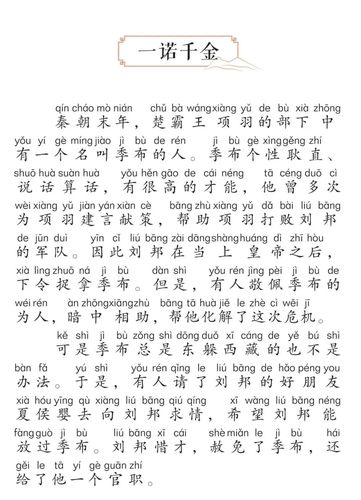 一诺千金
qín cháo mò nián chǔ bà wáng xiàng yǔ de bù xià zhōng
秦朝末年，楚霸王项羽的部下中
yǒu yí gè míng jiào jì bù de rén jì bù gè xìng gěng zhí
有一个名叫季布的人。季布个性耿直、
shuō huà suàn huà yǒu hěn gāo de cái néng tā céng duō cì
说话算话，有很高的才能，他曾多次
wèi xiàng yǔ jiàn yán xiàn cè bāng zhù xiàng yǔ dǎ bài liú bāng
为项羽建言献策，帮助项羽打败刘邦
de jūn duì yīn cǐ liú bāng zài dāng shàng huáng dì zhī hòu
的军队。因此刘邦在当上皇帝之后，
xià lìng zhuō ná jì bù dàn shì yǒu rén jìng pèi jì bù de
下令捉拿季布。但是，有人敬佩季布的
wéi rén àn zhōng xiāng zhù bāng tā huà jiě le zhè cì wēi jī
为人，暗中相助，帮他化解了这次危机。
kě shì jì bù zǒng shì dōng duǒ xī cáng de yě bú shì
可是季布总是东躲西藏的也不是
bàn fǎ yú shì yǒu rén qǐng le liú bāng de hǎo péng you
办法。于是，有人请了刘邦的好朋友
xià hóu yīng qù xiàng liú bāng qiú qíng xī wàng liú bāng néng
夏侯婴去向刘邦求情，希望刘邦能
fàng guò jì bù liú bāng xī cái shè miǎn le jì bù hái
放过季布。刘邦惜才，赦免了季布，还
gěi le tā yí gè guān zhí
给了他一个官职。